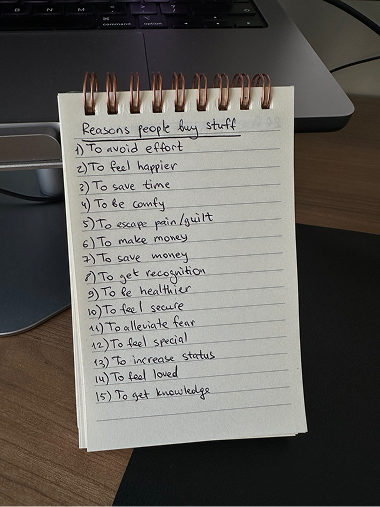 Reasons people buy stuff
1) To avoid effort
2) To feel happier
3) To save time
4) To be comfy
5) To escape pain/guilt
6) To make money
7) To save money
8) To get recognition
9) To be healthier
10) To feel secure
11) To alleviate fear
12) To feel special
13) To increase status
14) To feel loved
15) To get knowledge